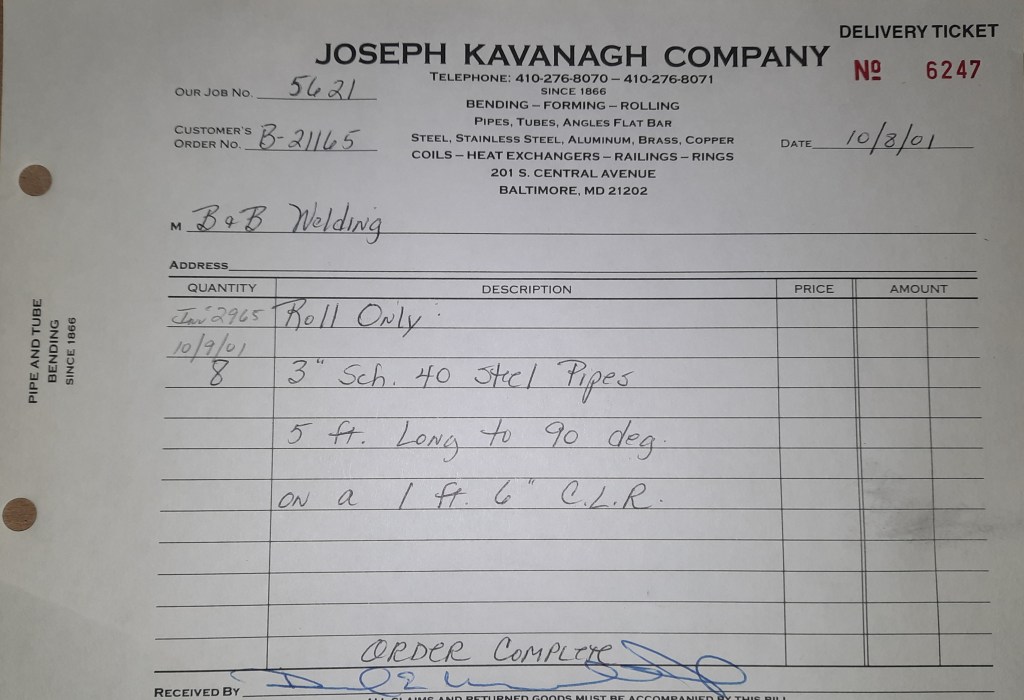 DELIVERY TICKET
JOSEPH KAVANAGH COMPANY
Nº 6247
TELEPHONE: 410-276-8070 – 410-276-8071
SINCE 1866
OUR JOB NO. 5621
BENDING – FORMING – ROLLING
PIPES, TUBES, ANGLES FLAT BAR
CUSTOMER'S
ORDER NO. B-21165
STEEL, STAINLESS STEEL, ALUMINUM, BRASS, COPPER
DATE 10/8/01
COILS – HEAT EXCHANGERS – RAILINGS – RINGS
201 S. CENTRAL AVENUE
BALTIMORE, MD 21202
M B & B Welding
ADDRESS
QUANTITY DESCRIPTION PRICE AMOUNT
Inv 2965 Roll Only
10/9/01
8 3" Sch. 40 Steel Pipes
5 ft. Long to 90 deg.
on a 1 ft. 6" C.L.R.
ORDER COMPLETE
RECEIVED BY
ALL CLAIMS AND RETURNED GOODS MUST BE ACCOMPANIED BY THIS BILL
PIPE AND TUBE
BENDING
SINCE 1866